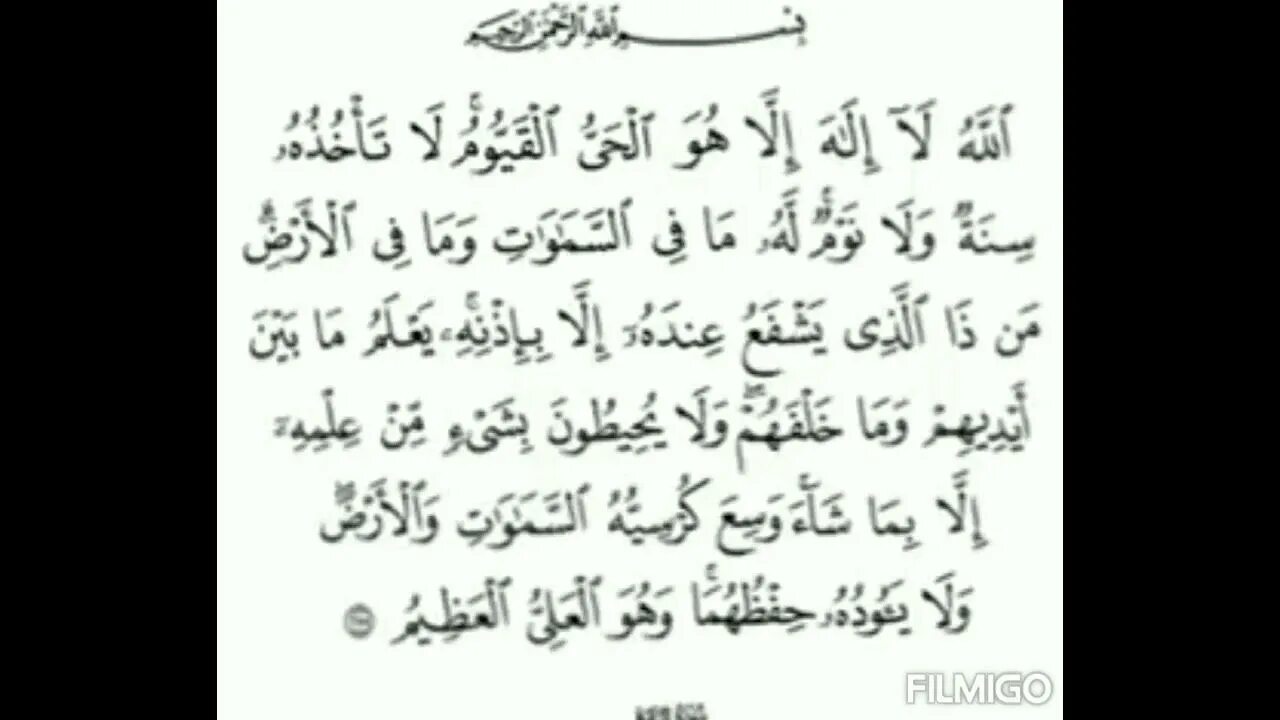 بِسْمِ ٱللَّهِ ٱلرَّحْمَٰنِ ٱلرَّحِيمِ
ٱللَّهُ لَآ إِلَٰهَ إِلَّا هُوَ ٱلْحَىُّ ٱلْقَيُّومُ ۚ لَا تَأْخُذُهُۥ
سِنَةٌ وَلَا نَوْمٌ ۚ لَّهُۥ مَا فِى ٱلسَّمَٰوَٰتِ وَمَا فِى ٱلْأَرْضِ ۗ
مَن ذَا ٱلَّذِى يَشْفَعُ عِندَهُۥٓ إِلَّا بِإِذْنِهِۦ ۚ يَعْلَمُ مَا بَيْنَ
أَيْدِيهِمْ وَمَا خَلْفَهُمْ ۖ وَلَا يُحِيطُونَ بِشَىْءٍ مِّنْ عِلْمِهِۦٓ
إِلَّا بِمَا شَآءَ ۚ وَسِعَ كُرْسِيُّهُ ٱلسَّمَٰوَٰتِ وَٱلْأَرْضَ ۖ
وَلَا يَـُٔودُهُۥ حِفْظُهُمَا ۚ وَهُوَ ٱلْعَلِىُّ ٱلْعَظِيمُ
FILMIGO